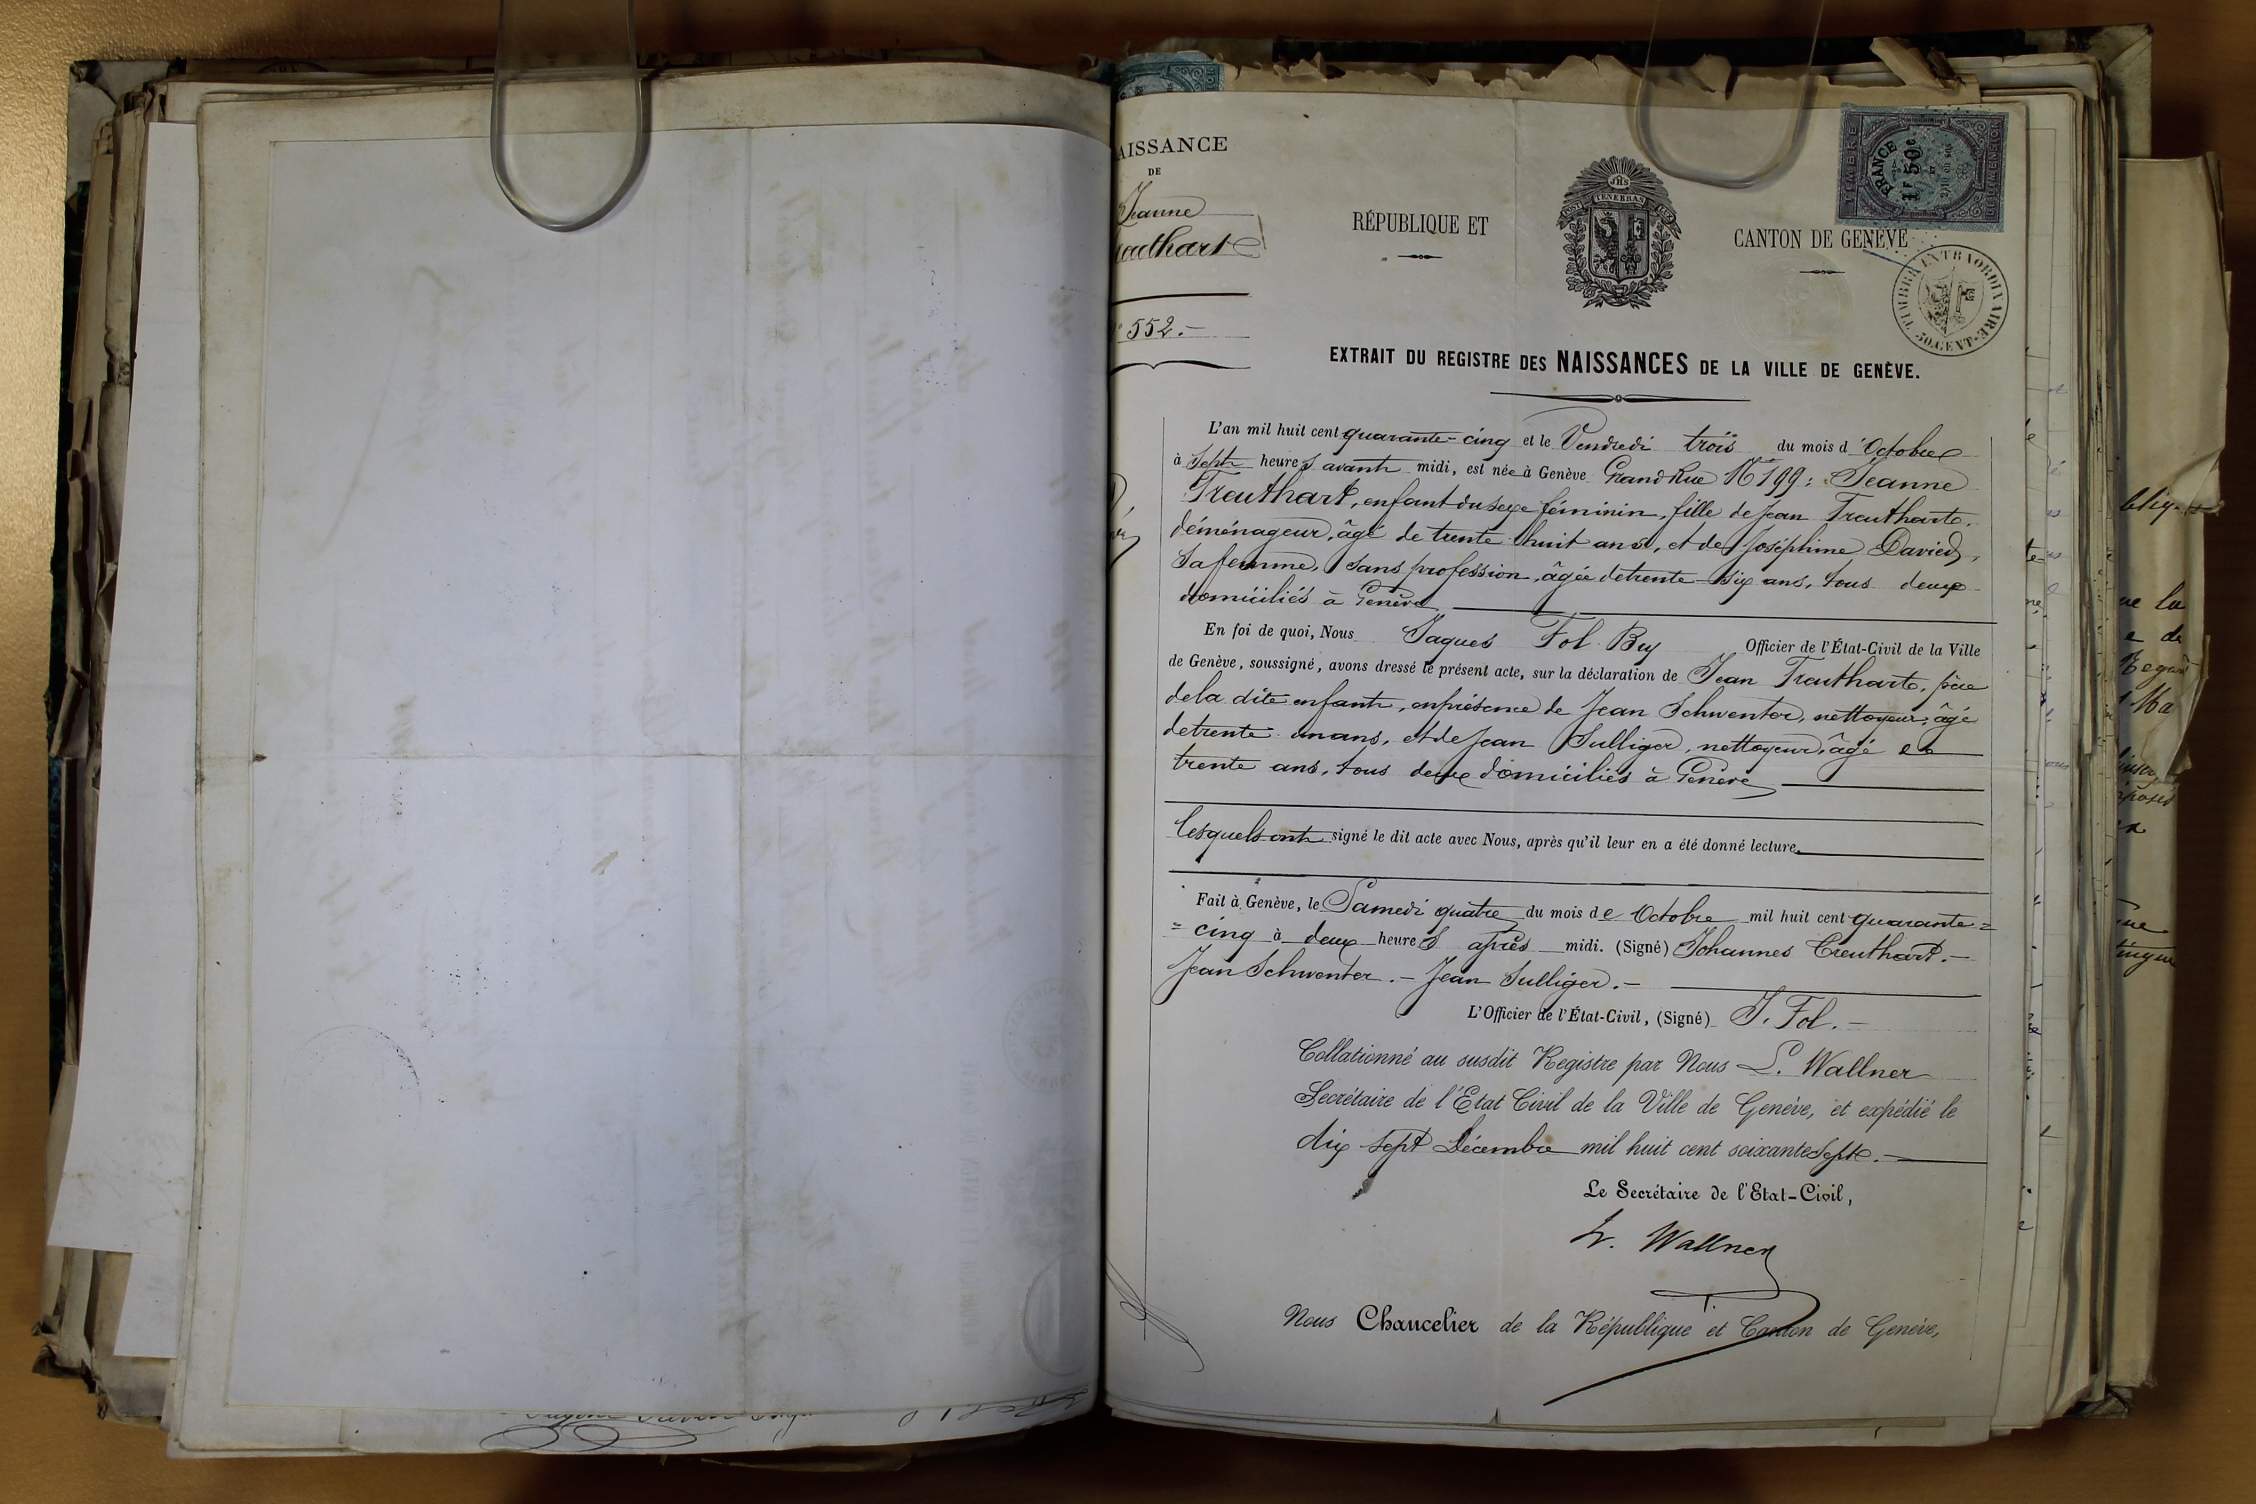 AISSANCE
DE
Jeanne
euthart
552.-
RÉPUBLIQUE ET
CANTON DE GENÈVE
JHS
POST TENEBRAS LUX
TIMBRE
FRANCE
1F 50c
TIMBRE EXTRAORDINAIRE
50 CENT.
EXTRAIT DU REGISTRE DES NAISSANCES DE LA VILLE DE GENÈVE.
L'an mil huit cent quarante-cinq et le Vendredi trois du mois d'Octobre
à Sept heures avant midi, est née à Genève Grand Rue No 199: Jeanne
Treuthart, enfant du sexe féminin, fille de Jean Treuthart,
déménageur, âgé de trente huit ans, et de Joséphine David,
sa femme, sans profession, âgée de trente-six ans, tous deux
domiciliés à Genève
En foi de quoi, Nous Jaques Fol Bry Officier de l'État-Civil de la Ville
de Genève, soussigné, avons dressé le présent acte, sur la déclaration de Jean Treuthart, père
de la dite enfant, en présence de Jean Schwenter, nettoyeur, âgé
de trente un ans, et de Jean Sulliger, nettoyeur, âgé de
trente ans, tous deux domiciliés à Genève
lesquels ont signé le dit acte avec Nous, après qu'il leur en a été donné lecture.
Fait à Genève, le Samedi quatre du mois de Octobre mil huit cent quarante=
=cinq à deux heures après midi. (Signé) Johannes Treuthart.-
Jean Schwenter.- Jean Sulliger.-
L'Officier de l'État-Civil, (Signé) J. Fol.-
Collationné au susdit Registre par Nous L. Wallner
Secrétaire de l'Etat Civil de la Ville de Genève, et expédié le
dix sept Décembre mil huit cent soixante Sept.-
Le Secrétaire de l'Etat-Civil,
L. Wallner
Nous Chancelier de la République et Canton de Genève,